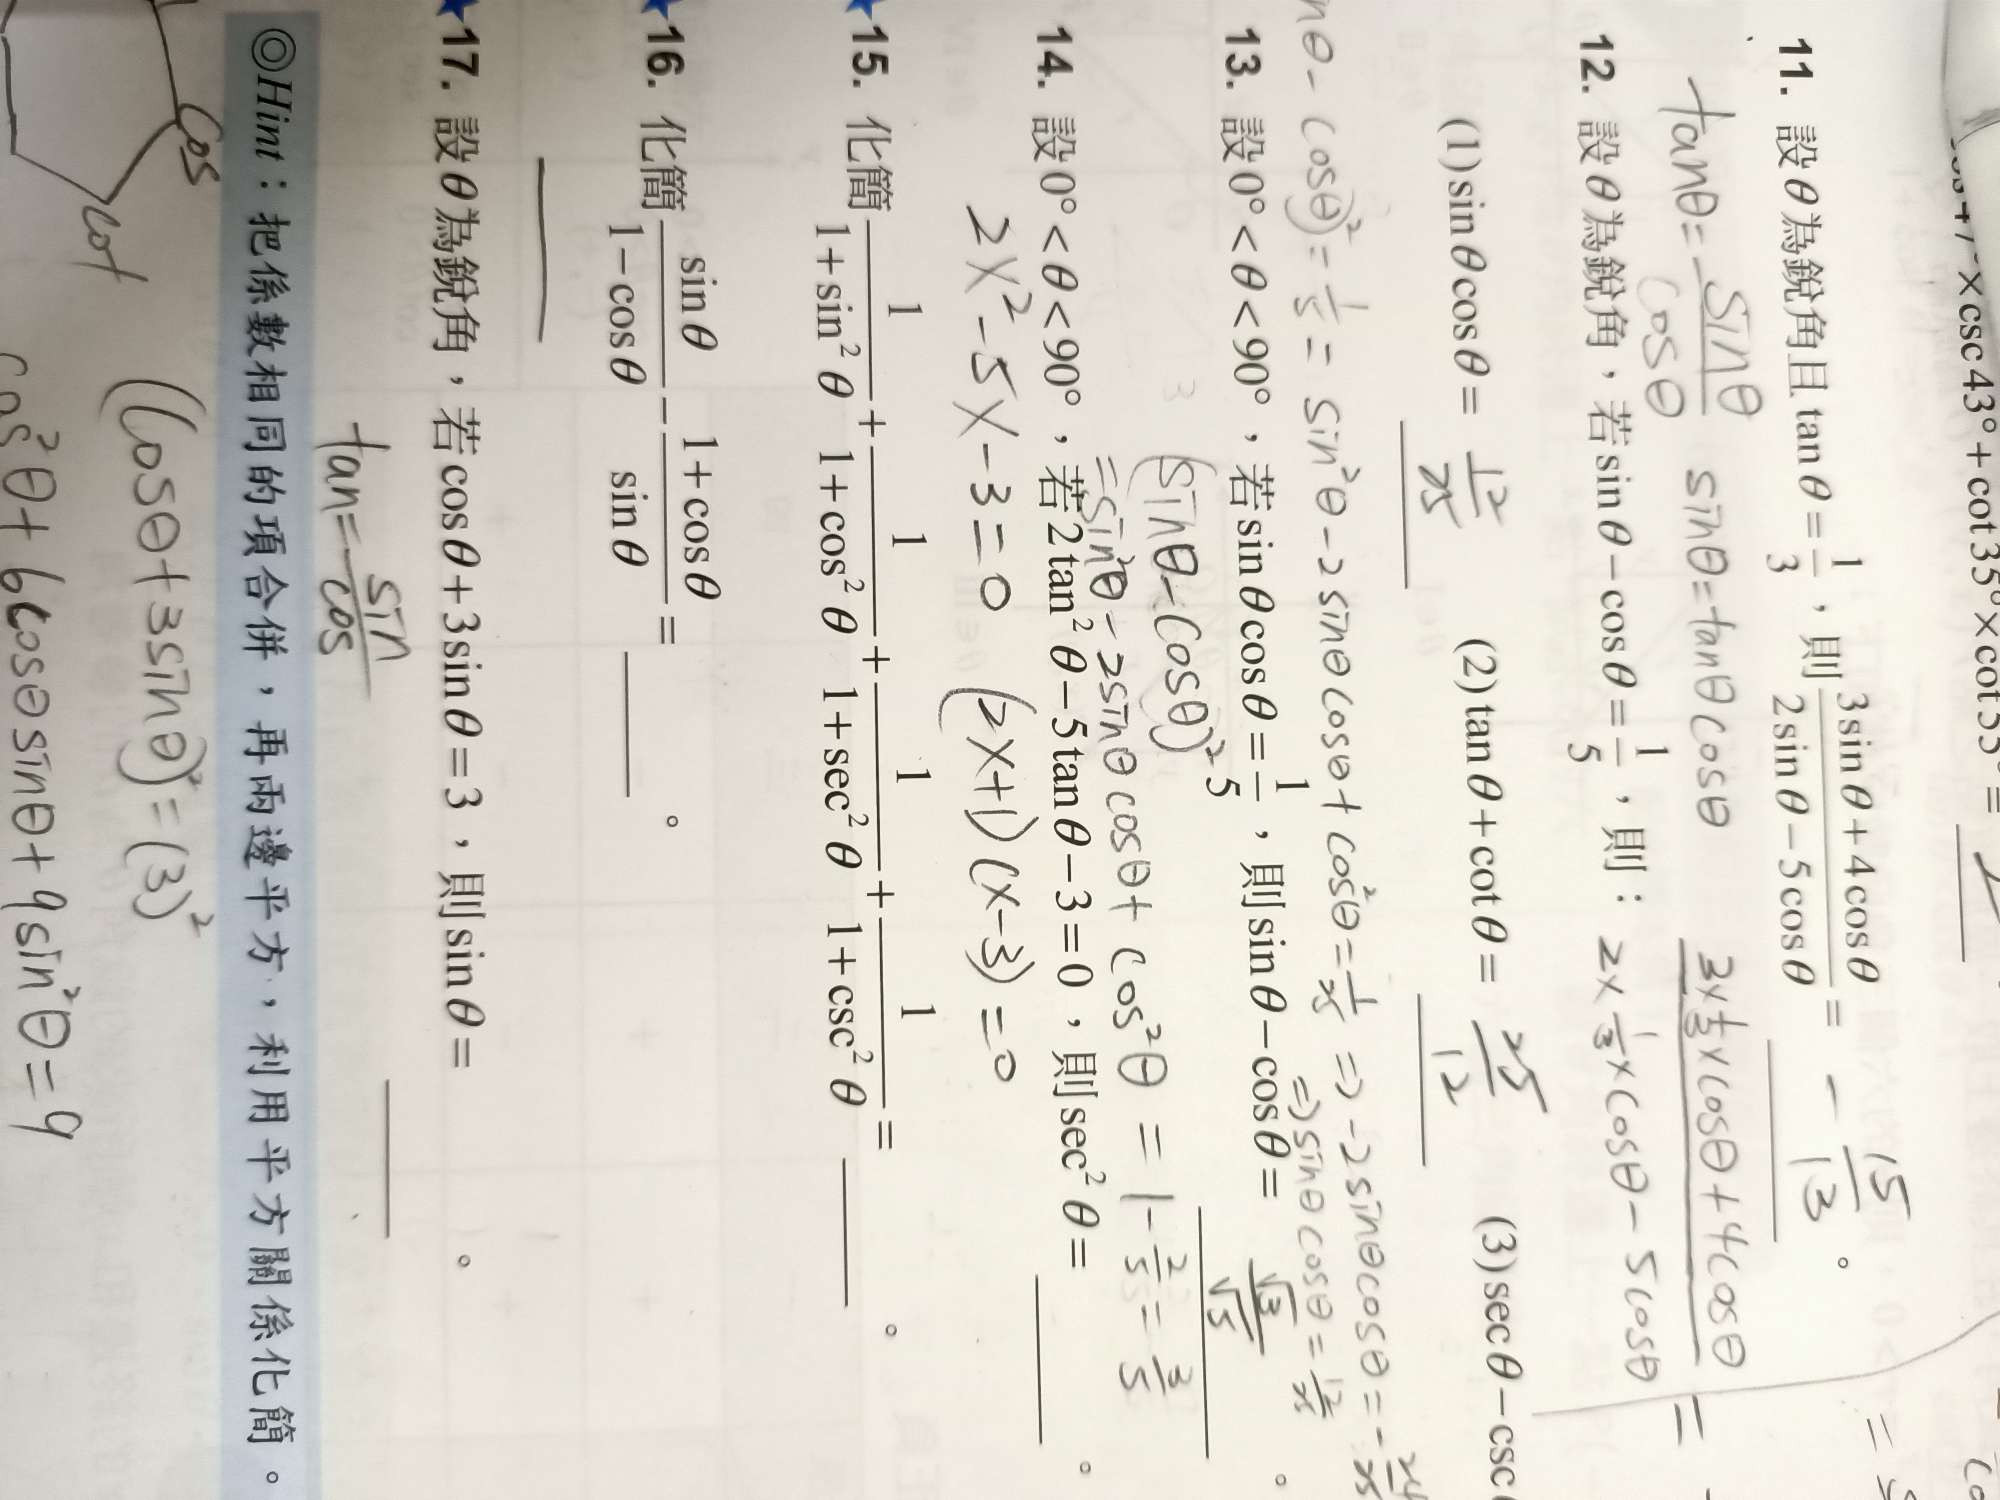 ×csc43°+cot35°×cot55°=
11. 設θ為銳角且tanθ=1/3，則(3sinθ+4cosθ)/(2sinθ-5cosθ)= -15/13 。
tanθ=sinθ/cosθ sinθ=tanθcosθ (3×1/3×cosθ+4cosθ)/(2×1/3×cosθ-5cosθ) =
12. 設θ為銳角，若sinθ-cosθ=1/5，則：
(1)sinθcosθ= 12/25 (2)tanθ+cotθ= 25/12 (3)secθ-csc
nθ-cosθ)²=1/5 = sin²θ-2sinθcosθ+cos²θ=1/25 ⇒ -2sinθcosθ=-24/25
⇒sinθcosθ=12/25
13. 設0°<θ<90°，若sinθcosθ=1/5，則sinθ-cosθ= √3/√5 。
(sinθ-cosθ)²
=sin²θ-2sinθcosθ+cos²θ=1-2/5=3/5
14. 設0°<θ<90°，若2tan²θ-5tanθ-3=0，則sec²θ= 。
2x²-5x-3=0 (2x+1)(x-3)=0
★15. 化簡1/(1+sin²θ)+1/(1+cos²θ)+1/(1+sec²θ)+1/(1+csc²θ)= 。
★16. 化簡sinθ/(1-cosθ)-(1+cosθ)/sinθ= 。
★17. 設θ為銳角，若cosθ+3sinθ=3，則sinθ= 。
tan=sin/cos
◎Hint：把係數相同的項合併，再兩邊平方，利用平方關係化簡。
cos
cot
(cosθ+3sinθ)²=(3)²
cos²θ+6cosθsinθ+9sin²θ=9